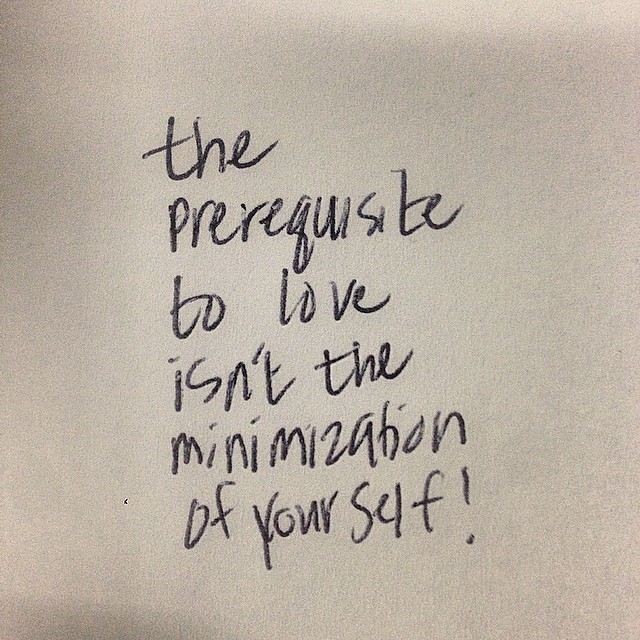 the
prerequisite
to love
isn't the
minimization
of yourself!